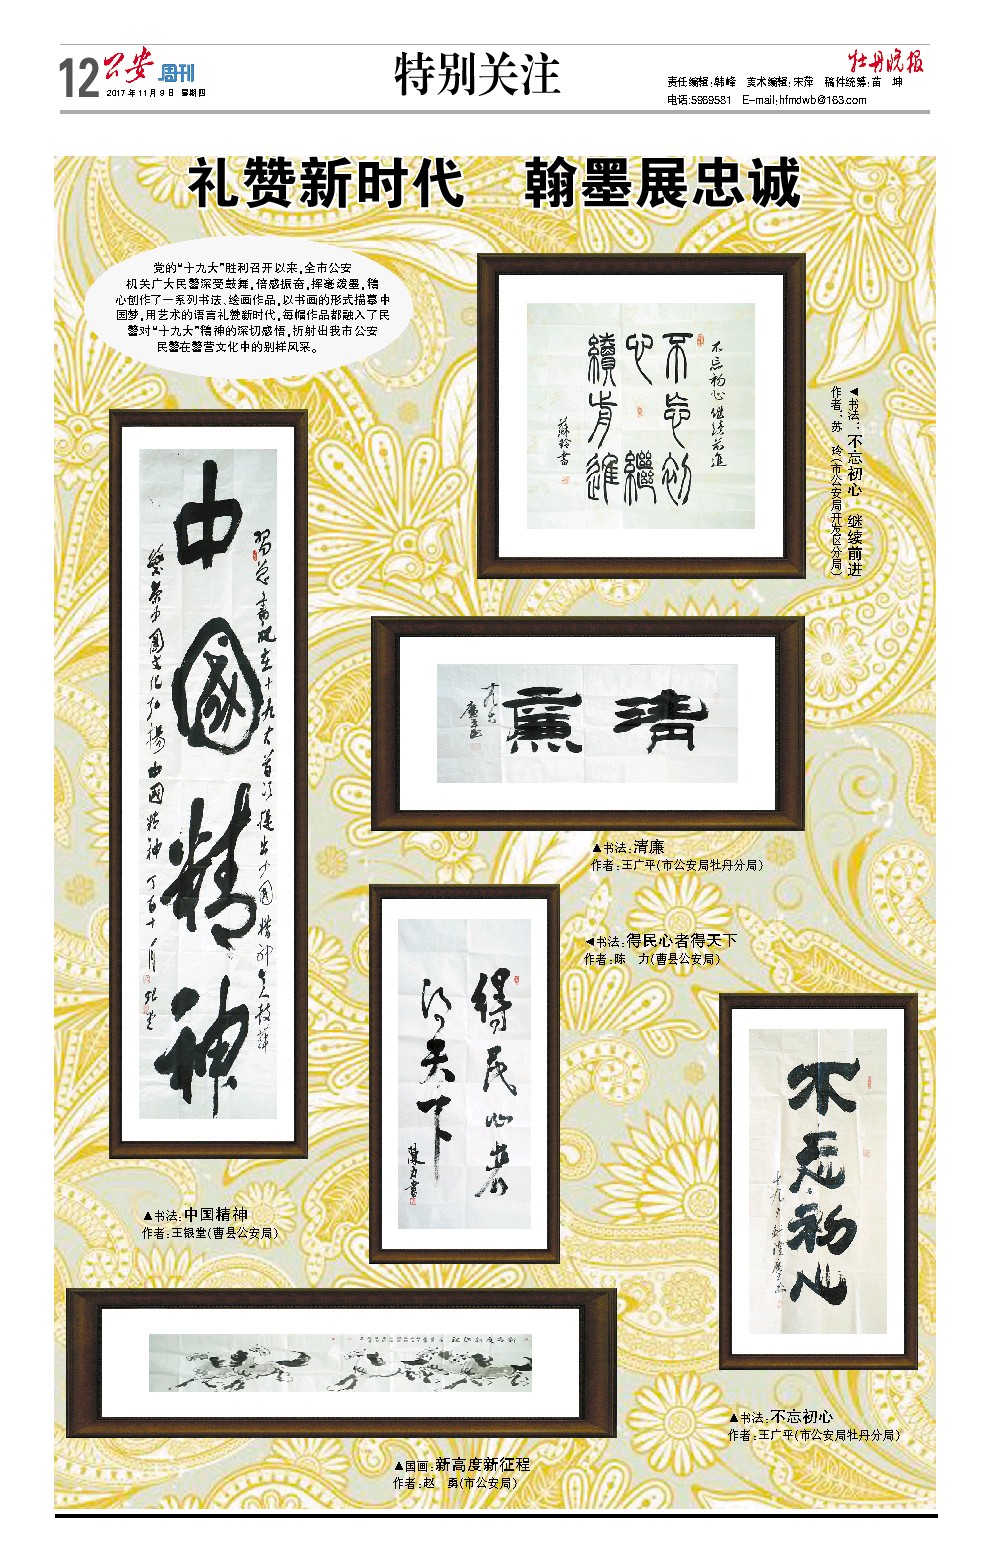 12 公安 周刊
2017年11月9日 星期四
特别关注
牡丹晚报
责任编辑:韩峰 美术编辑:宋萍 稿件统筹:苗 坤
电话:5969581 E-mail:hfmdwb@163.com
礼赞新时代 翰墨展忠诚
党的“十九大”胜利召开以来,全市公安
机关广大民警深受鼓舞,倍感振奋,挥毫泼墨,精
心创作了一系列书法、绘画作品,以书画的形式描摹中
国梦,用艺术的语言礼赞新时代,每幅作品都融入了民
警对“十九大”精神的深切感悟,折射出我市公安
民警在警营文化中的别样风采。
不忘初
心繼
續前進
不忘初心 继续前進
蘇玲書
◀书法:不忘初心 继续前进
作者:苏 玲(市公安局开发区分局)
中國精神
繁荣中國文化弘揚中國精神
清廉
▲书法:清廉
作者:王广平(市公安局牡丹分局)
◀书法:得民心者得天下
作者:陈 力(曹县公安局)
得民心者
得天下
陳力書
不忘初心
▲书法:中国精神
作者:王银堂(曹县公安局)
▲书法:不忘初心
作者:王广平(市公安局牡丹分局)
▲国画:新高度新征程
作者:赵 勇(市公安局)